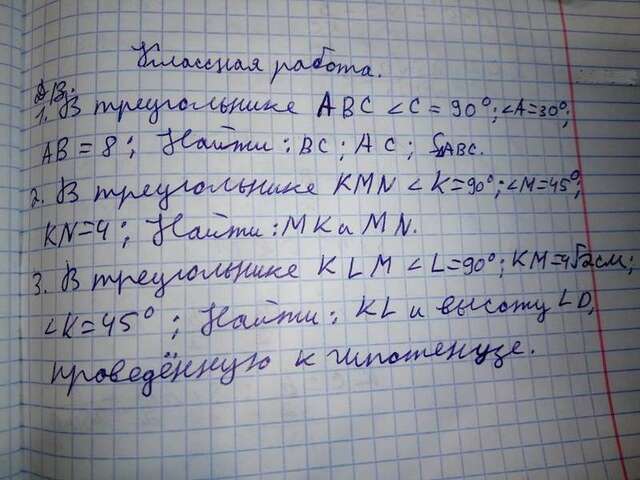 Классная работа.
Д/В.
1. В треугольнике ABC <C = 90°; <A=30°;
AB = 8 ; Найти : BC ; AC ; SABC.
2. В треугольнике KMN <K=90°; <M=45°;
KN=4 ; Найти : MK и MN.
3. В треугольнике KLM <L=90°; KM=4√2см;
<K=45° ; Найти : KL и высоту LD,
проведённую к гипотенузе.